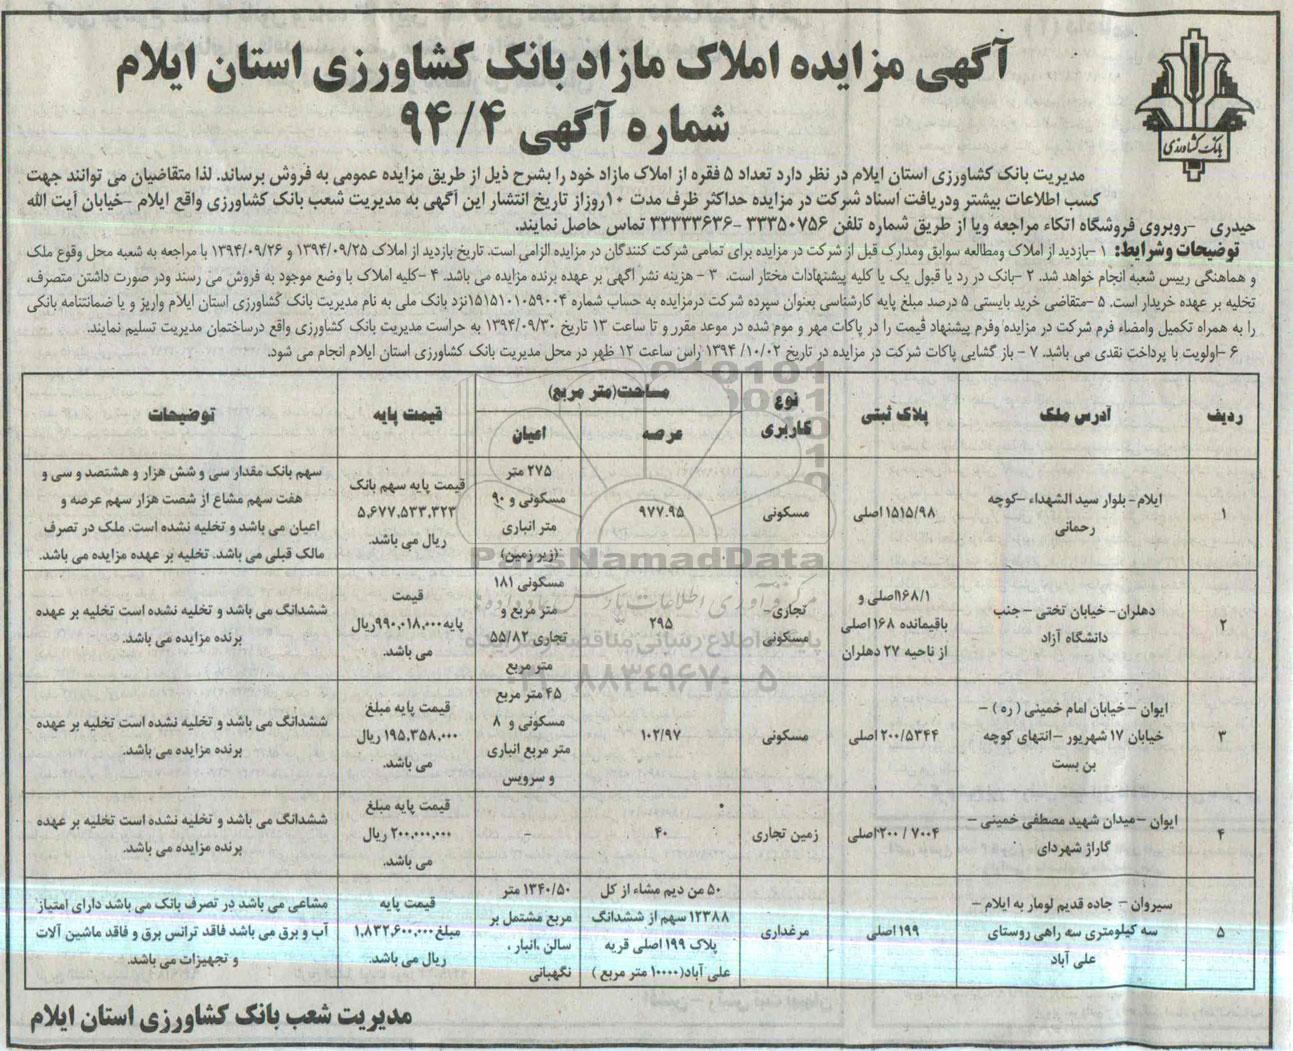 آگهی مزایده املاک مازاد بانک کشاورزی استان ایلام
شماره آگهی ۹۴/۴
بانک کشاورزی
مدیریت بانک کشاورزی استان ایلام در نظر دارد تعداد ۵ فقره از املاک مازاد خود را بشرح ذیل از طریق مزایده عمومی به فروش برساند. لذا متقاضیان می توانند جهت
کسب اطلاعات بیشتر ودریافت اسناد شرکت در مزایده حداکثر ظرف مدت ۱۰روزاز تاریخ انتشار این آگهی به مدیریت شعب بانک کشاورزی واقع ایلام –خیابان آیت الله
حیدری –روبروی فروشگاه اتکاء مراجعه ویا از طریق شماره تلفن ۳۳۳۵۰۷۵۶ –۳۳۳۳۳۶۳۶ تماس حاصل نمایند.
توضیحات وشرایط: ۱ –بازدید از املاک ومطالعه سوابق ومدارک قبل از شرکت در مزایده برای تمامی شرکت کنندگان در مزایده الزامی است. تاریخ بازدید از املاک ۱۳۹۴/۰۹/۲۵ و ۱۳۹۴/۰۹/۲۶ با مراجعه به شعبه محل وقوع ملک
و هماهنگی رییس شعبه انجام خواهد شد. ۲ –بانک در رد یا قبول یک یا کلیه پیشنهادات مختار است. ۳ – هزینه نشر آگهی بر عهده برنده مزایده می باشد. ۴ –کلیه املاک با وضع موجود به فروش می رسند ودر صورت داشتن متصرف،
تخلیه بر عهده خریدار است. ۵ –متقاضی خرید بایستی ۵ درصد مبلغ پایه کارشناسی بعنوان سپرده شرکت درمزایده به حساب شماره ۱۵۱۵۱۰۱۰۵۹۰۰۴نزد بانک ملی به نام مدیریت بانک کشاورزی استان ایلام واریز و یا ضمانتنامه بانکی
را به همراه تکمیل وامضاء فرم شرکت در مزایده وفرم پیشنهاد قیمت را در پاکات مهر و موم شده در موعد مقرر و تا ساعت ۱۳ تاریخ ۱۳۹۴/۰۹/۳۰ به حراست مدیریت بانک کشاورزی واقع درساختمان مدیریت تسلیم نمایند.
۶ –اولویت با پرداخت نقدی می باشد. ۷ – باز گشایی پاکات شرکت در مزایده در تاریخ ۱۰/۰۲/ ۱۳۹۴ راس ساعت ۱۲ ظهر در محل مدیریت بانک کشاورزی استان ایلام انجام می شود.
ردیف | آدرس ملک | پلاک ثبتی | نوع کاربری | مساحت(متر مربع) عرصه | اعیان | قیمت پایه | توضیحات
۱ | ایلام – بلوار سید الشهداء –کوچه رحمانی | ۱۵۱۵/۹۸ اصلی | مسکونی | ۹۷۷.۹۵ | ۲۷۵ متر مسکونی و ۹۰ متر انباری (زیر زمین) | قیمت پایه سهم بانک ۵,۶۷۷,۵۳۳,۳۲۳ ریال می باشد. | سهم بانک مقدار سی و شش هزار و هشتصد و سی و هفت سهم مشاع از شصت هزار سهم عرصه و اعیان می باشد و تخلیه نشده است. ملک در تصرف مالک قبلی می باشد. تخلیه بر عهده مزایده می باشد.
۲ | دهلران – خیابان تختی – جنب دانشگاه آزاد | ۱۶۸/۱اصلی و باقیمانده ۱۶۸ اصلی از ناحیه ۲۷ دهلران | تجاری– مسکونی | ۲۹۵ | مسکونی ۱۸۱ متر مربع و تجاری ۵۵/۸۲ متر مربع | قیمت پایه۹۹۰,۰۱۸,۰۰۰ریال می باشد | ششدانگ می باشد و تخلیه نشده است تخلیه بر عهده برنده مزایده می باشد.
۳ | ایوان – خیابان امام خمینی ( ره ) – خیابان ۱۷ شهریور –انتهای کوچه بن بست | ۲۰۰/۵۳۴۴ اصلی | مسکونی | ۱۰۲/۹۷ | ۴۵ متر مربع مسکونی و ۸ متر مربع انباری و سرویس | قیمت پایه مبلغ ۱۹۵,۳۵۸,۰۰۰ ریال می باشد. | ششدانگ می باشد و تخلیه نشده است تخلیه بر عهده برنده مزایده می باشد.
۴ | ایوان –میدان شهید مصطفی خمینی – گاراژ شهردای | ۷۰۰۴ / ۲۰۰اصلی | زمین تجاری | ۴۰ | – | قیمت پایه مبلغ ۲۰۰,۰۰۰,۰۰۰ ریال می باشد. | ششدانگ می باشد و تخلیه نشده است تخلیه بر عهده برنده مزایده می باشد.
۵ | سیروان – جاده قدیم لومار به ایلام – سه کیلومتری سه راهی روستای علی آباد | ۱۹۹ اصلی | مرغداری | ۵۰ من دیم مشاء از کل ۱۲۳۸۸ سهم از ششدانگ پلاک ۱۹۹ اصلی قریه علی آباد(۱۰۰۰۰ متر مربع ) | ۱۳۴۰/۵۰ متر مربع مشتمل بر سالن ،انبار ، نگهبانی | قیمت پایه مبلغ۱,۸۳۲,۶۰۰,۰۰۰ ریال می باشد. | مشاعی می باشد در تصرف بانک می باشد دارای امتیاز آب و برق می باشد فاقد ترانس برق و فاقد ماشین آلات و تجهیزات می باشد.
مدیریت شعب بانک کشاورزی استان ایلام
ParsNamadData